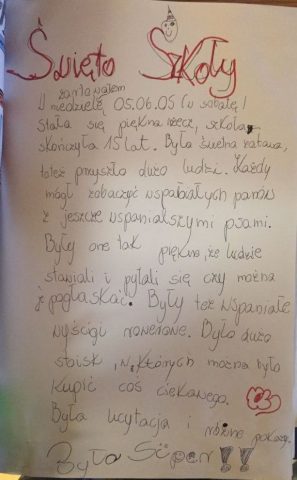 Święto Szkoły
żartowałem
W niedzielę 05.06.05 (w sobotę)
stała się piękna rzecz, szkoła
skończyła 15 lat. Była świetna
toteż przyszło dużo ludzi. Każdy
mógł zobaczyć wspaniałych panów
z jeszcze wspanialszymi psami.
Były one tak piękne, że ludzie
stawiali i pytali się czy można
je pogłaskać. Były też wspaniałe
wyścigi rowerowe. Było dużo
stoisk, w których można było
kupić coś ciekawego.
Była licytacja i różne pokazy.
Było Süper!!